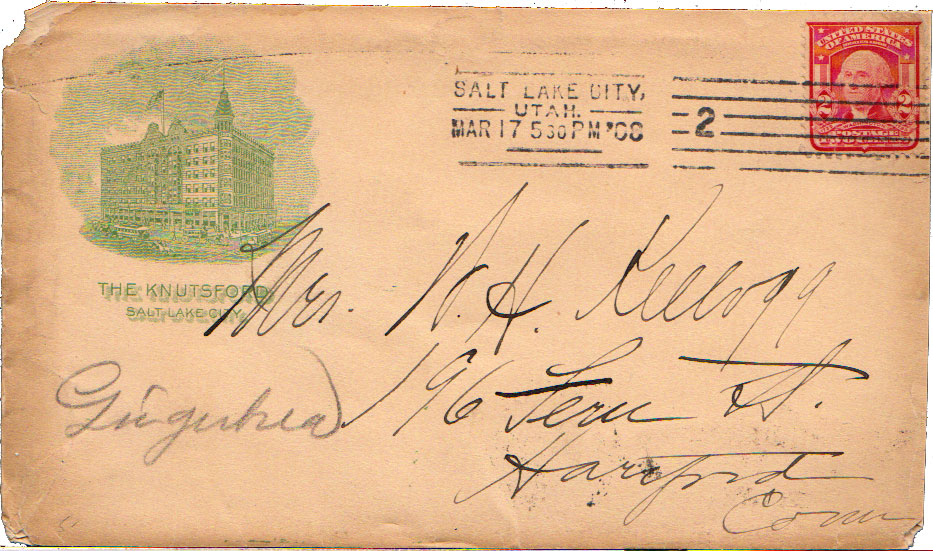 SALT LAKE CITY,
UTAH.
MAR 17 5 30 PM '08
2
UNITED STATES
OF AMERICA
2 2
POSTAGE
THE KNUTSFORD
SALT LAKE CITY
Mrs. N. H. Kellogg
196 Fern St.
Hartford
Conn